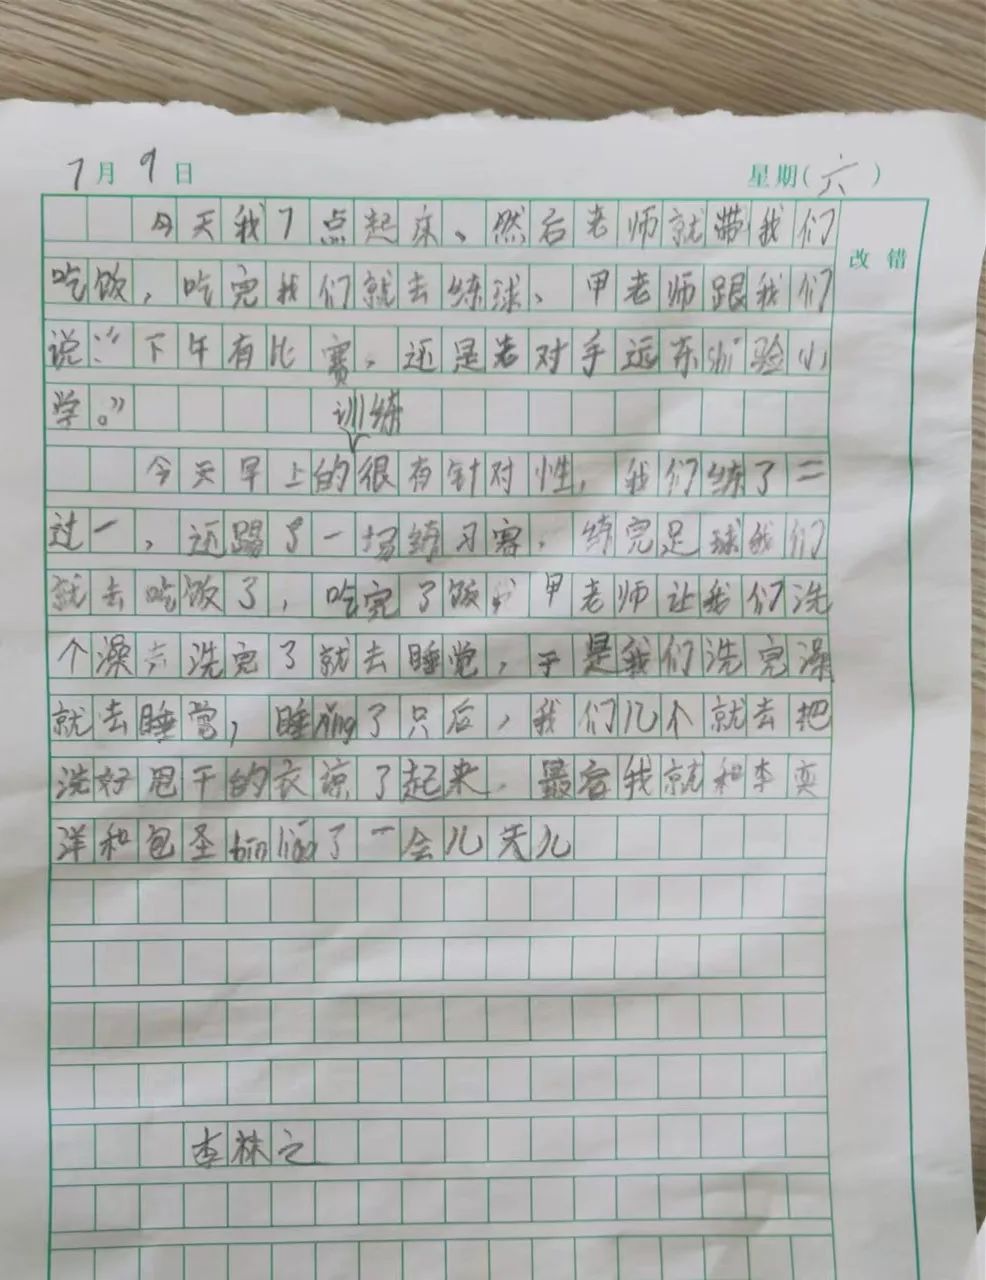 7月9日 星期(六)
改错
今天我7点起床、然后老师就带我们
吃饭，吃完我们就去练球、甲老师跟我们
说：“下午有比赛，还是老对手远东shi验小
学。”
训练
今天早上的很有针对性，我们练了二
过一，还踢了一场练习赛，练完足球我们
就去吃饭了，吃完了饭 甲老师让我们洗
个澡 洗完了就去睡觉，于是我们洗完澡
就去睡觉，睡xing了只后，我们几个就去把
洗好甩干的衣谅了起来，最容我就和李奕
洋和包圣bin liáo了一会儿天儿
李 之